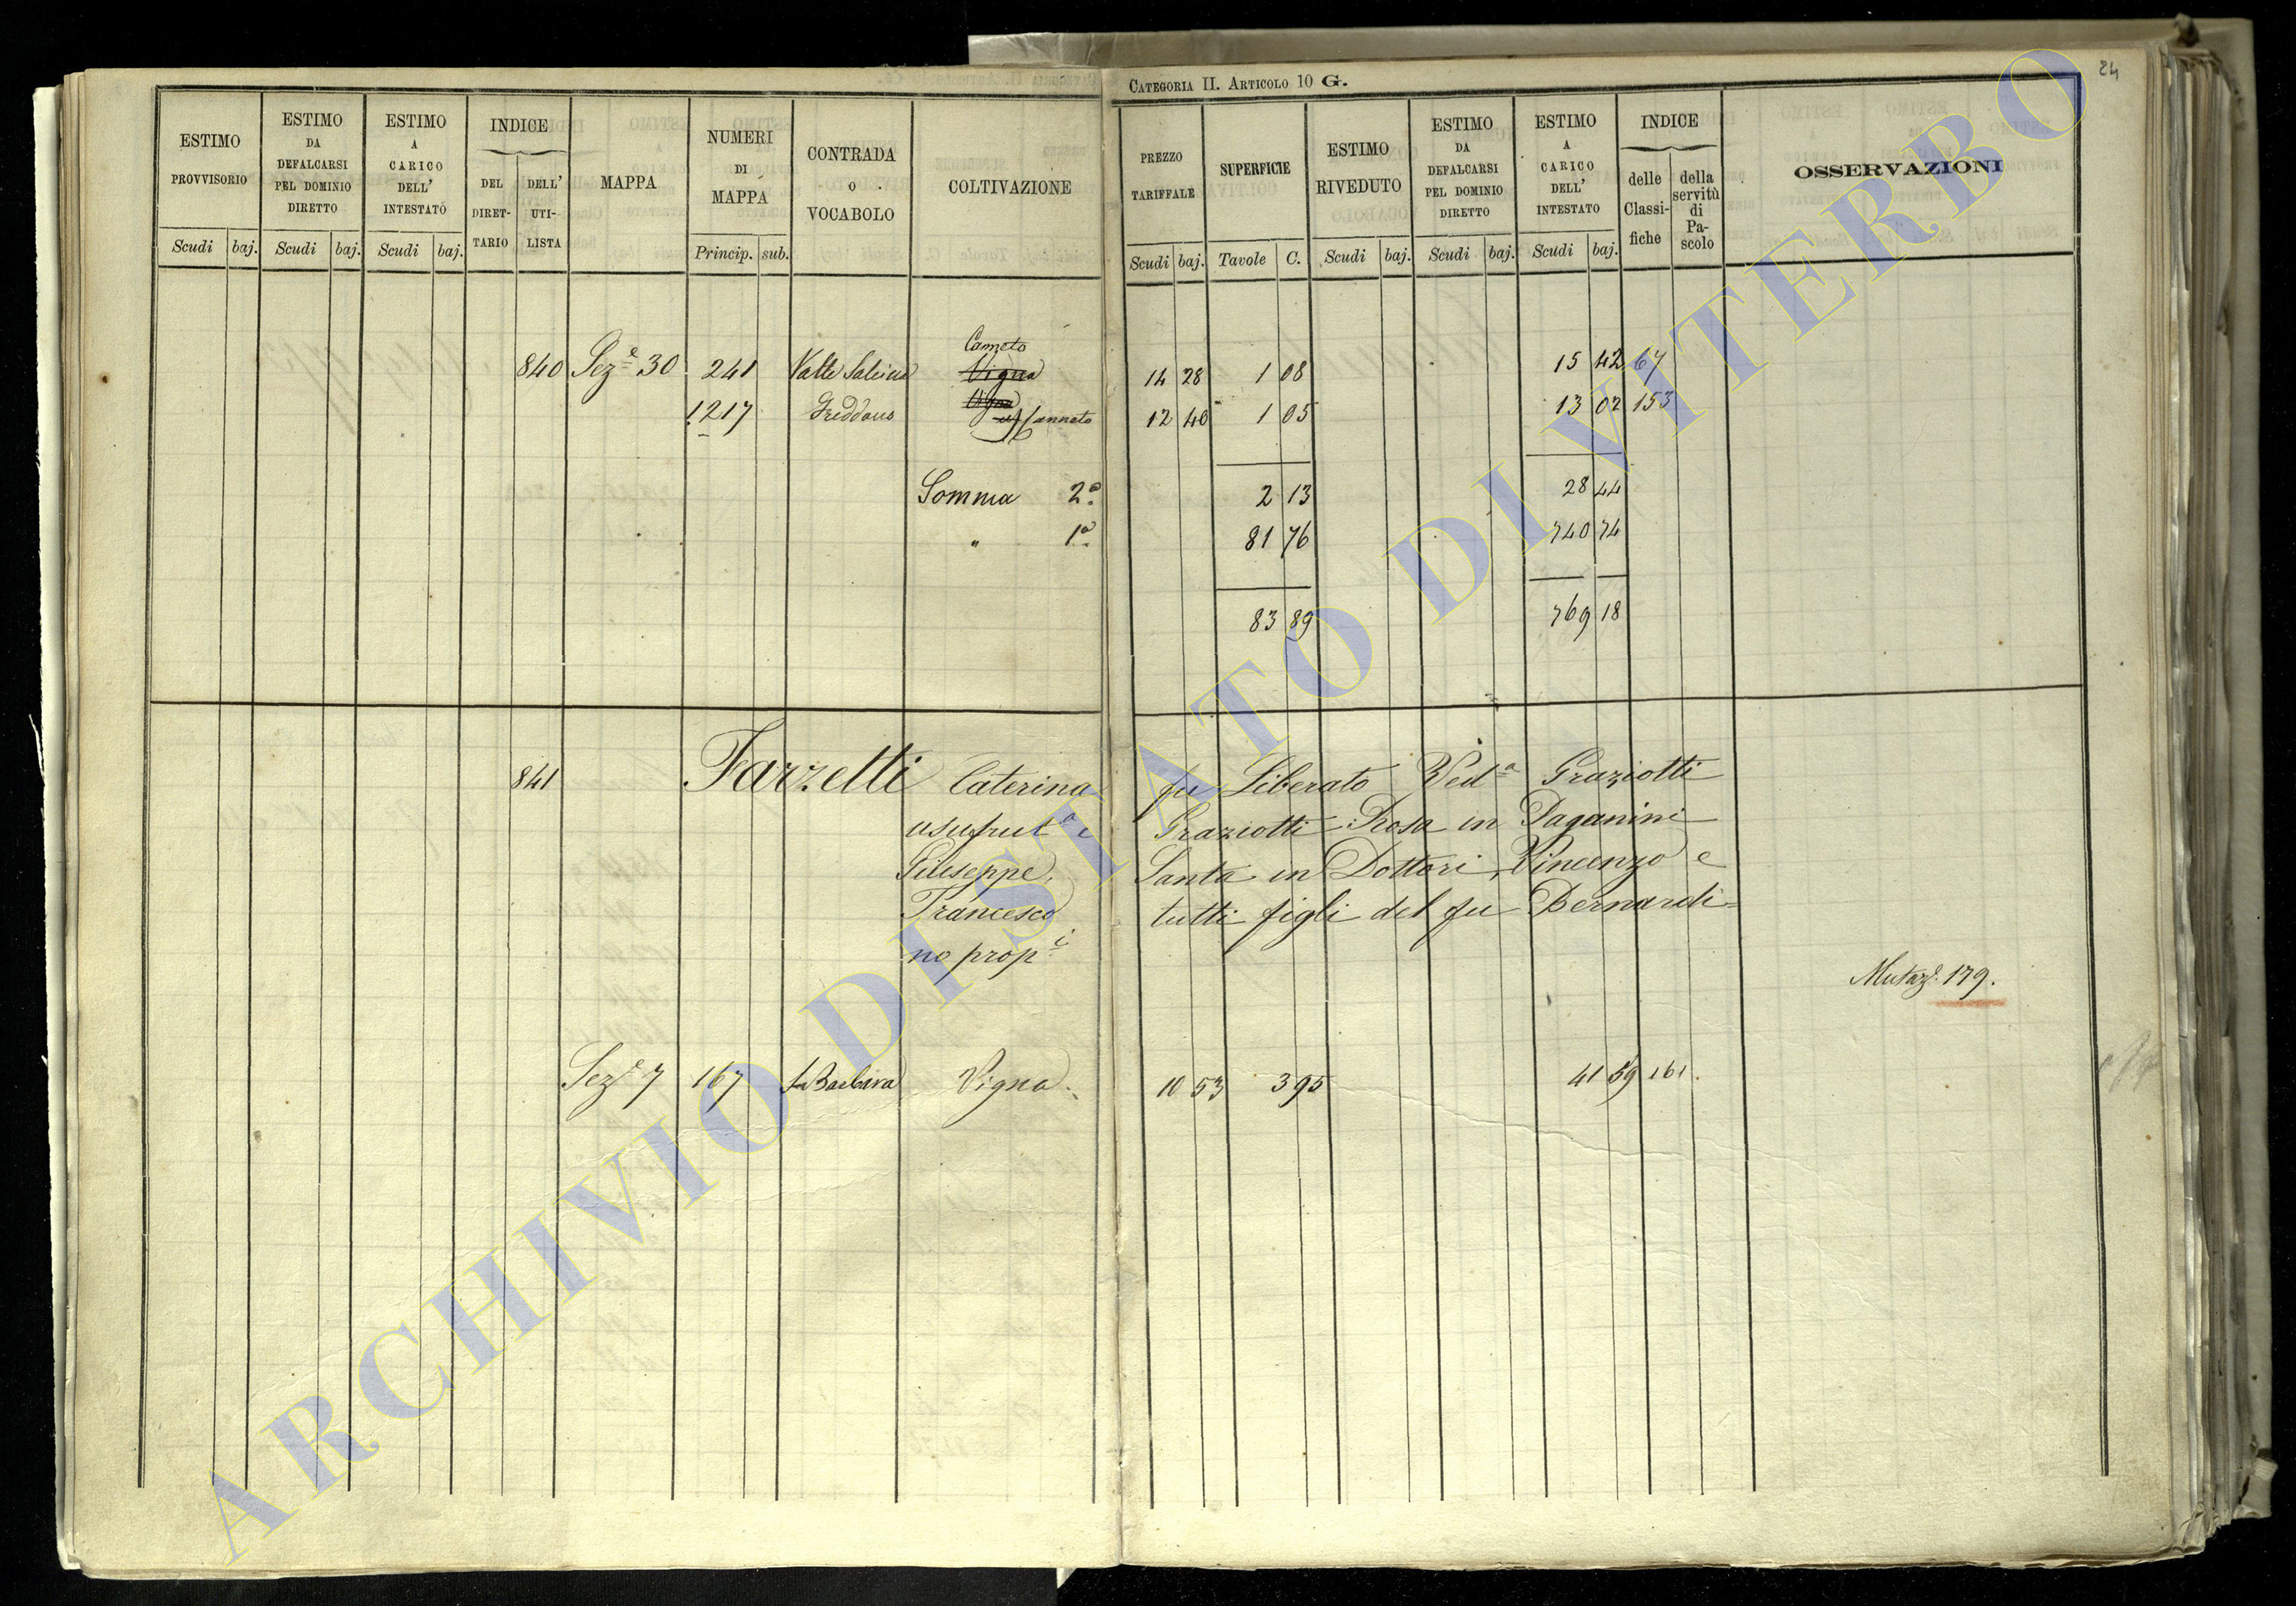 CATEGORIA II. ARTICOLO 10 G.
24
ESTIMO PROVVISORIO
ESTIMO DA DEFALCARSI PEL DOMINIO DIRETTO
ESTIMO A CARICO DELL' INTESTATO
INDICE
DEL DIRET-TARIO
DELL' UTI-LISTA
MAPPA
NUMERI DI MAPPA
CONTRADA O VOCABOLO
COLTIVAZIONE
PREZZO TARIFFALE
SUPERFICIE
ESTIMO RIVEDUTO
ESTIMO DA DEFALCARSI PEL DOMINIO DIRETTO
ESTIMO A CARICO DELL' INTESTATO
INDICE
delle Classi-fiche
della servitù di Pa-scolo
OSSERVAZIONI
Scudi baj. Scudi baj. Scudi baj. Princip. sub. Scudi baj. Tavole C. Scudi baj. Scudi baj. Scudi baj.
Canneto
840 Sez.e 30 241 Valle Vigna 14 28 1 08 15 42 67
Vigna
1217 Freddano Canneto 12 40 1 05 13 02 153
Somma 2a 2 13 28 44
" 1a 81 76 740 74
83 89 769 18
841 Farzetti Caterina fu Liberato Ved.a Graziotti
usufrut.a e Graziotti Rosa in Paganini
Giuseppe, Santa in Dottori, Vincenzo e
Francesco tutti figli del fu Bernardi-
no prop.i
Mutaz.e 179.
Sez.e 7 167 S. Barbara Vigna 10 53 3 95 41 59 161.
ARCHIVIO DI STATO DI VITERBO